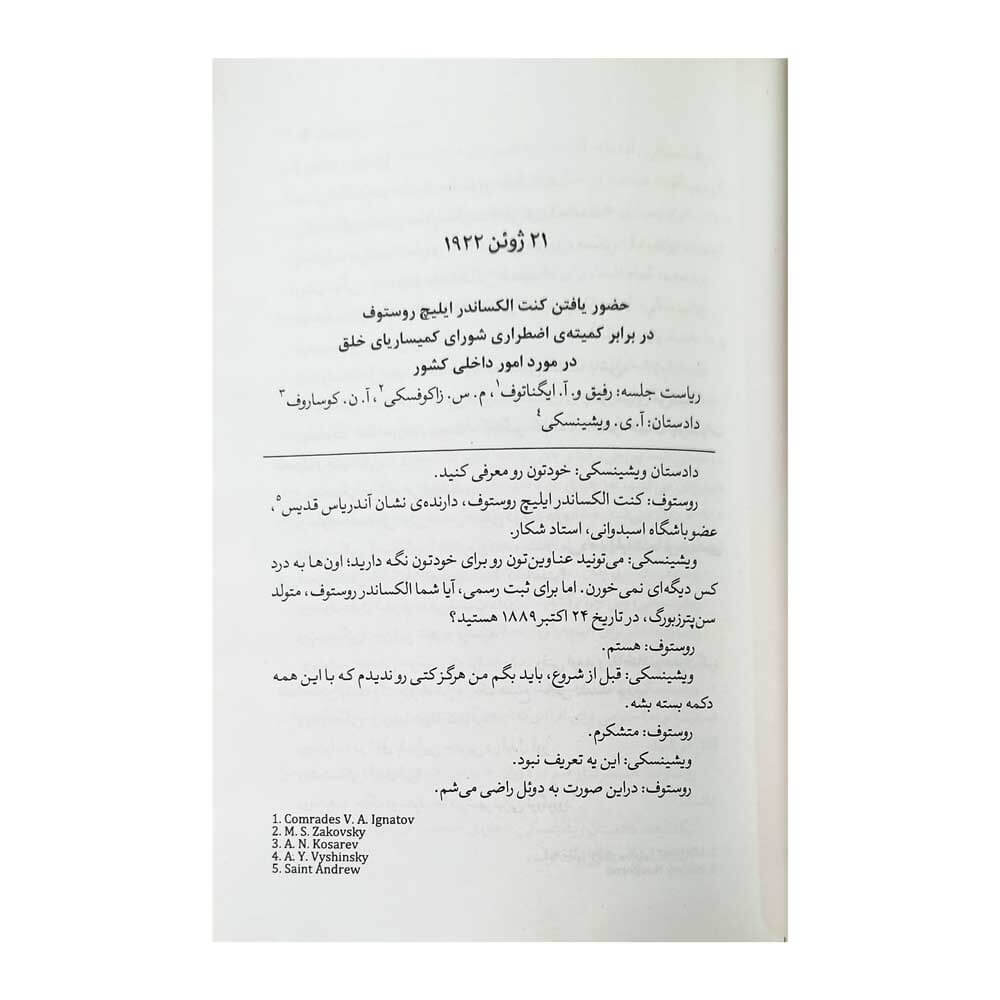 ۲۱ ژوئن ۱۹۲۲
حضور یافتن کنت الکساندر ایلیچ روستوف
در برابر کمیته‌ی اضطراری شورای کمیساریای خلق
در مورد امور داخلی کشور
ریاست جلسه: رفیق و. آ. ایگناتوف۱، م. س. زاکوفسکی۲، آ. ن. کوساروف۳
دادستان: آ. ی. ویشینسکی۴
دادستان ویشینسکی: خودتون رو معرفی کنید.
روستوف: کنت الکساندر ایلیچ روستوف، دارنده‌ی نشان آندریاس قدیس۵،
عضو باشگاه اسبدوانی، استاد شکار.
ویشینسکی: می‌تونید عناوین‌تون رو برای خودتون نگه دارید؛ اون‌ها به درد
کس دیگه‌ای نمی‌خورن. اما برای ثبت رسمی، آیا شما الکساندر روستوف، متولد
سن‌پترزبورگ، در تاریخ ۲۴ اکتبر ۱۸۸۹ هستید؟
روستوف: هستم.
ویشینسکی: قبل از شروع، باید بگم من هرگز کتی رو ندیدم که با این همه
دکمه بسته بشه.
روستوف: متشکرم.
ویشینسکی: این یه تعریف نبود.
روستوف: دراین صورت به دوئل راضی می‌شم.
1. Comrades V. A. Ignatov
2. M. S. Zakovsky
3. A. N. Kosarev
4. A. Y. Vyshinsky
5. Saint Andrew